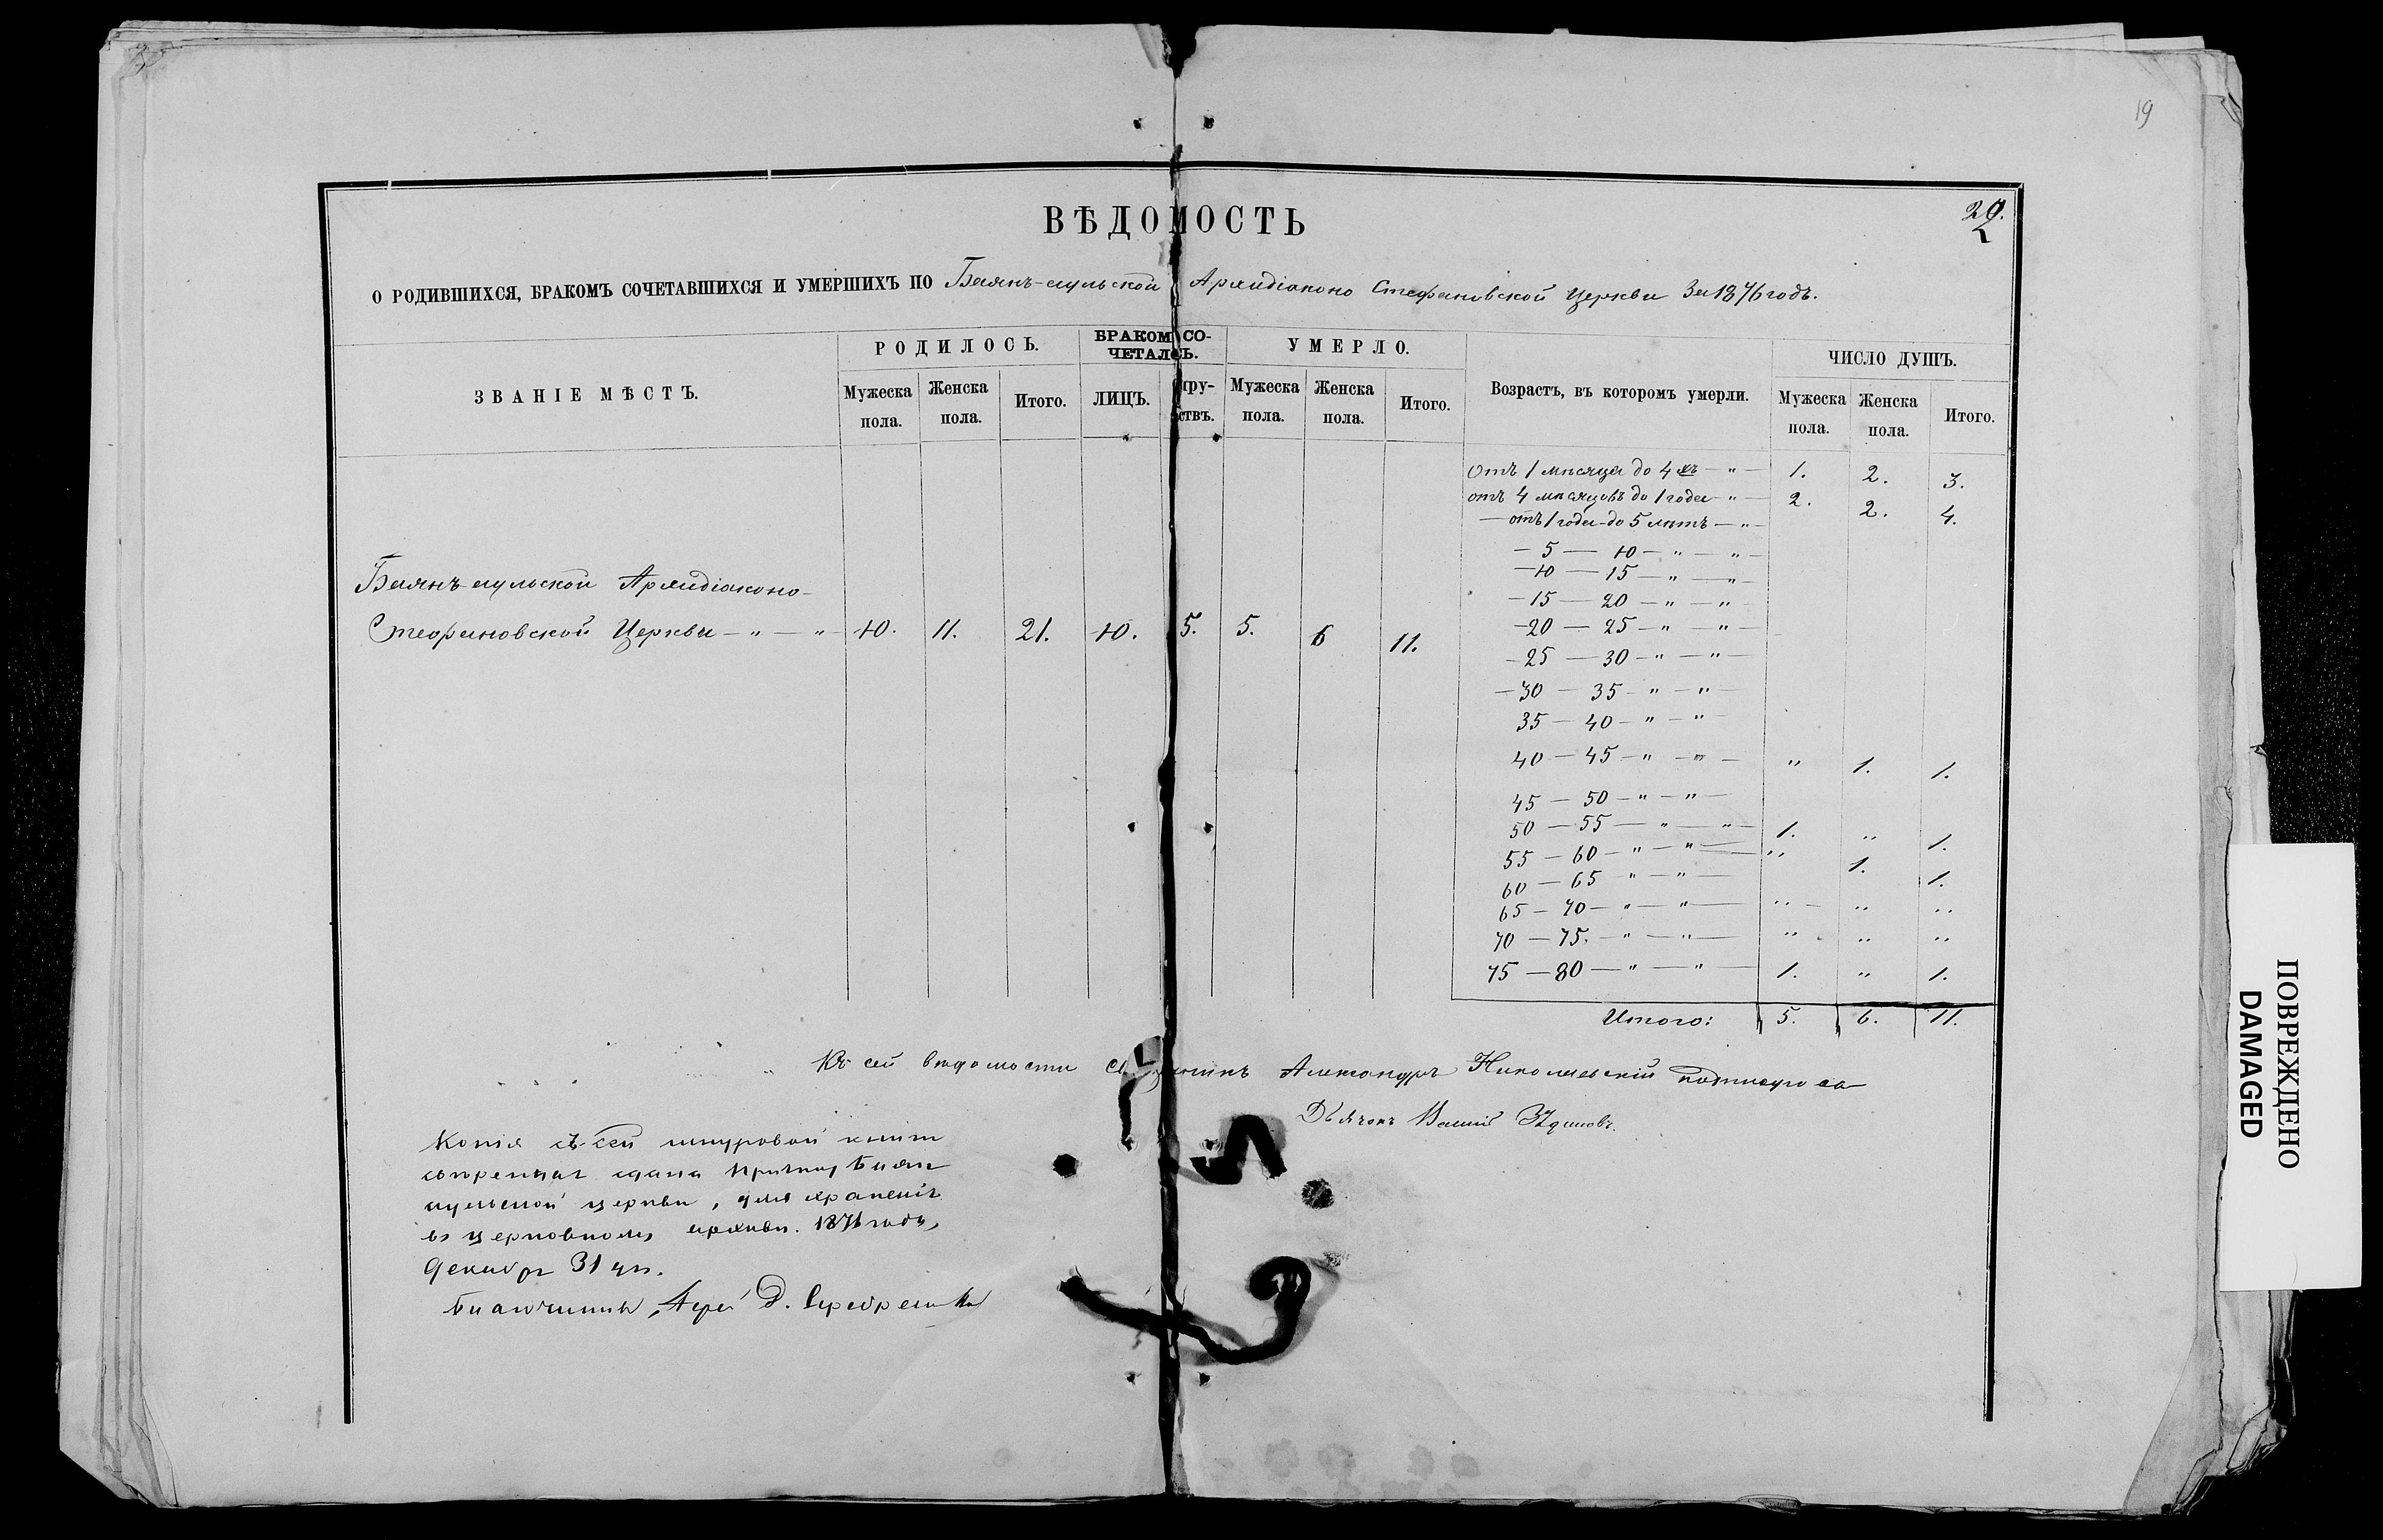 19
20.
ВѢДОМОСТЬ
О РОДИВШИХСЯ, БРАКОМЪ СОЧЕТАВШИХСЯ И УМЕРШИХЪ ПО Баянъ-аульской Архидіаконо Стефановской Церкви За 1876 годъ.
ЗВАНІЕ МѢСТЪ. РОДИЛОСЬ. БРАКОМ СО-ЧЕТАЛОСЬ. УМЕРЛО. Возрастъ, въ которомъ умерли. ЧИСЛО ДУШЪ.
Мужеска пола. Женска пола. Итого. ЛИЦЪ. пру-ствъ. Мужеска пола. Женска пола. Итого. Мужеска пола. Женска пола. Итого.
Отъ 1 мѣсяца до 4 хъ — " — 1. 2. 3.
отъ 4 мѣсяцовъ до 1 года — " — 2. 2. 4.
— отъ 1 года до 5 лѣтъ — " —
— 5 — 10 — " — " —
— 10 — 15 — " — " —
— 15 — 20 — " — "
— 20 — 25 — " — " —
— 25 — 30 — " — " —
— 30 — 35 — " — " —
35 — 40 — " — " —
40 — 45 — " — " — " 1. 1.
45 — 50 — " — " —
50 — 55 — " — " — 1. " 1.
55 — 60 — " — " — " 1. 1.
60 — 65 " — " —
65 — 70 — " — " — " — " "
70 — 75. — " — " — " " "
75 — 80 — " — " — 1. " 1.
Итого: 5. 6. 11.
Баянъ-аульской Архидіаконо-
Стефановской Церкви — " — " — 10. 11. 21. 10. 5. 5. 6 11.
Къ сей вѣдомости Александръ Николаевскій подписуюсь
Дьячокъ
Копія съ сей шнуровой книги
сдана Причту Баян
аульской церкви, для храненія
въ церковномъ архивѣ. 1876 года,
Декабря 31 дн.
Д.
ПОВРЕЖДЕНО
DAMAGED